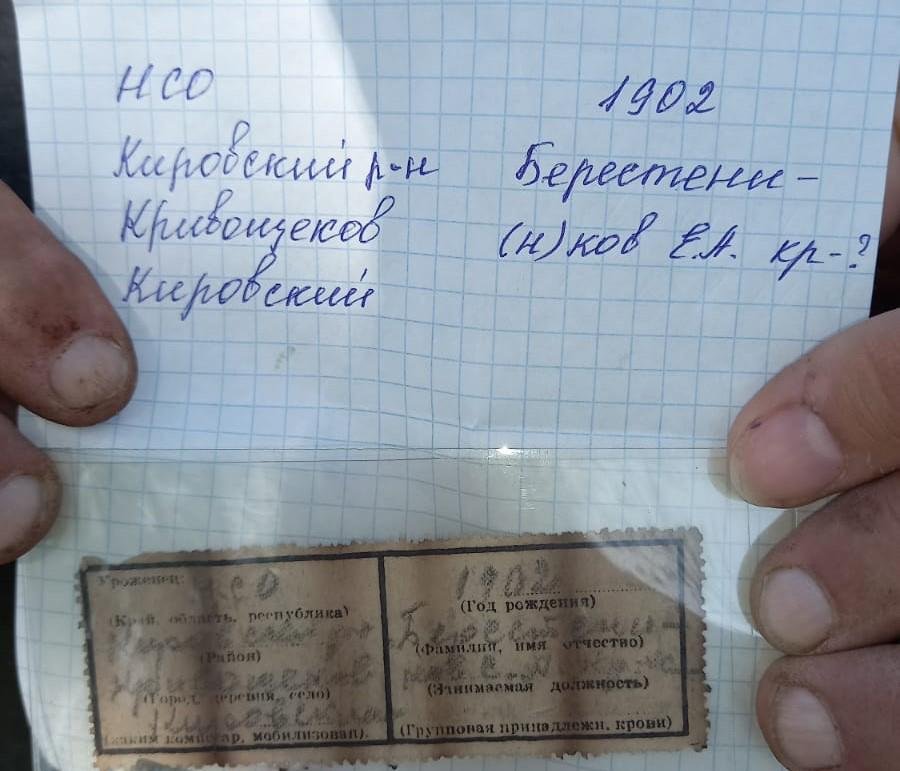 НСО
Кировский р-н
Кривощеков
Кировский
1902
Берестени-
(н)ков Е.А. кр-?
Уроженец:
НСО
(Край, область, республика)
(Район)
(Город, деревня, село)
(каким комиссар, мобилизован).
1902
(Год рождения)
Берестени-
(Фамилия, имя отчество)
(Занимаемая должность)
(Групповая принадлежн. крови)